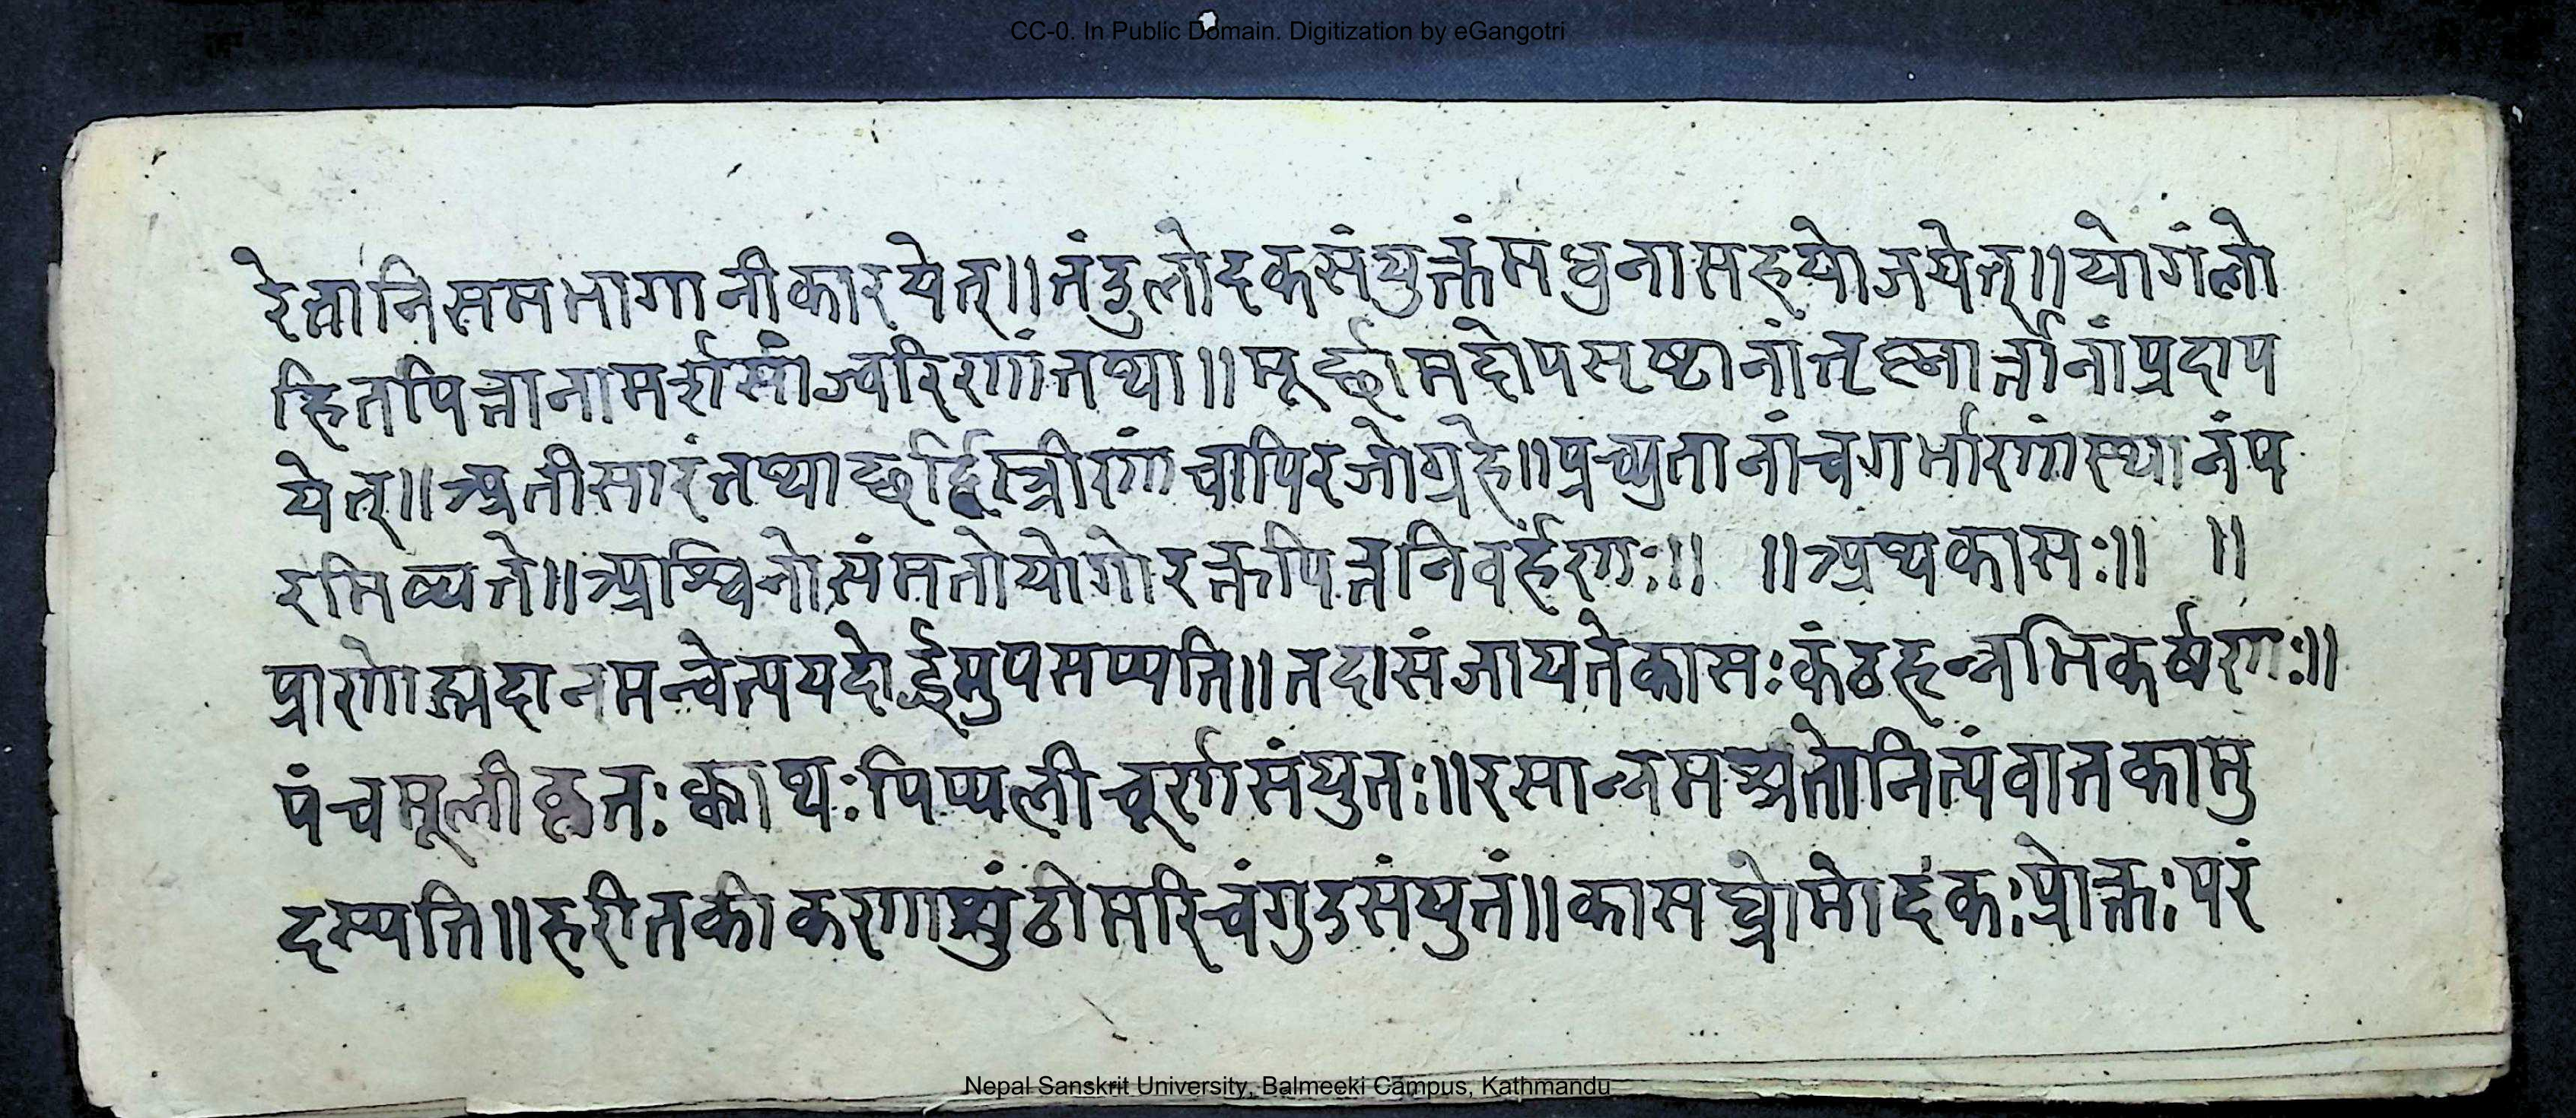 CC-0. In Public Domain. Digitization by eGangotri
रेत्तानिसमभागानीकारयेत्॥तंदुलोदकसंयुक्तंमधुनासहयोजयेत्॥योगंलो
हितपित्तानामर्शसांज्वरिणांतथा॥मूर्छामदोपसृष्टानांतृष्नार्त्तानांप्रदाप
येत्॥अतीसारंतथाछर्दिस्त्रीणांचापिरजोग्रहे॥प्रच्युतानांचगर्भाणांस्थानंप
रमिष्यते॥अश्विनोसंमतोयोगोरक्तपित्तनिवर्हणः॥ ॥अथकासः॥ ॥
प्राणोह्मदानमन्वेत्ययदोर्द्धमुपसप्यति॥तदासंजायतेकासःकंठहृन्नभिकर्षणः॥
पंचमूलीकृतःक्वाथःपिप्पलीचूर्णसंयुतः॥रसान्नमश्नतोनित्यंवातकामु
दस्यति॥हरीतकीकणाशुंठीमरिचंगुडसंयुतं॥कासघ्नोमोदकःप्रोक्तःपरं
Nepal Sanskrit University, Balmeeki Campus, Kathmandu